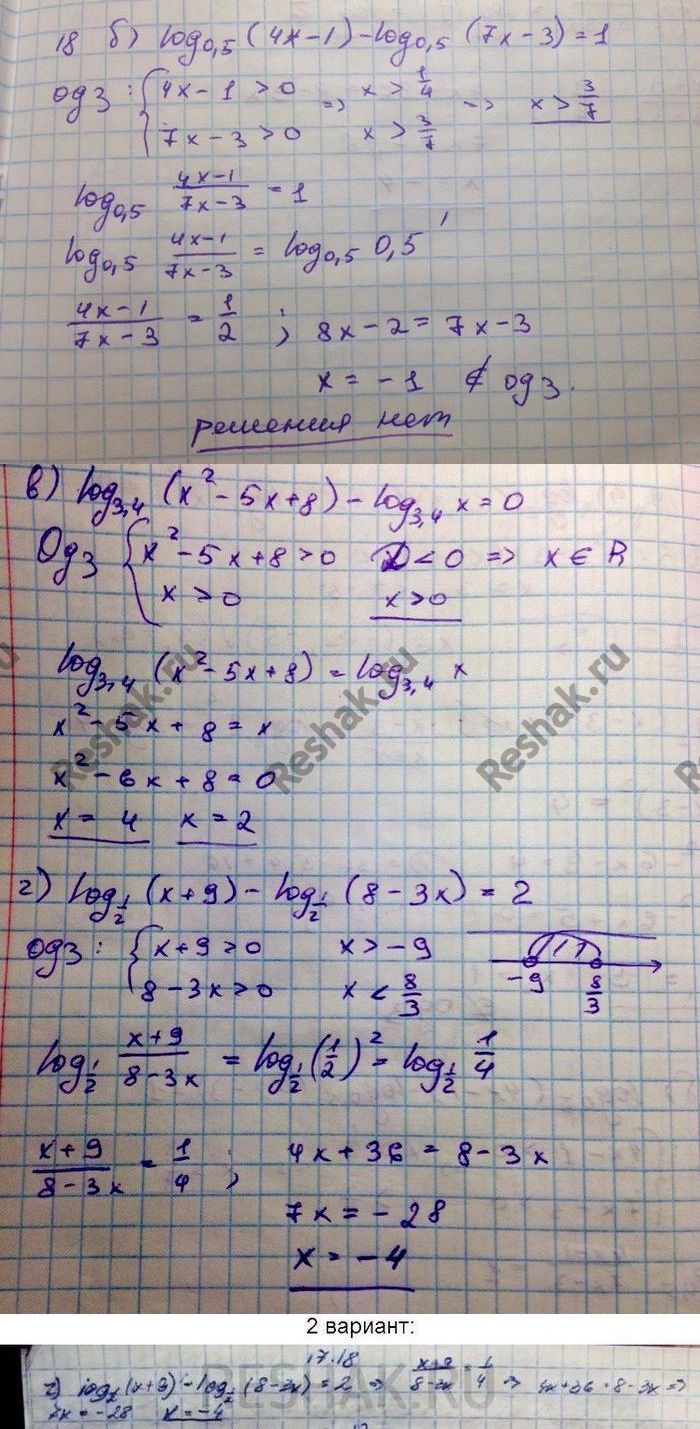 18 б) log₀,₅ (4x-1)-log₀,₅ (7x-3)=1
одз: { 4x-1>0 => x>1/4 => x>3/7
7x-3>0 x>3/7
log₀,₅ (4x-1)/(7x-3) = 1
log₀,₅ (4x-1)/(7x-3) = log₀,₅ 0,5¹
(4x-1)/(7x-3) = 1/2 ; 8x-2=7x-3
x=-1 ∉ одз.
решения нет
в) log₃,₄ (x²-5x+8)-log₃,₄ x=0
Одз { x²-5x+8>0 D<0 => x∈R
x>0 x>0
log₃,₄ (x²-5x+8)=log₃,₄ x
x²-5x+8=x
x²-6x+8=0
x=4 x=2
г) log_½ (x+9)-log_½ (8-3x)=2
одз: { x+9>0 x>-9
8-3x>0 x<8/3 -9 8/3
log_½ (x+9)/(8-3x) = log_½ (1/2)² = log_½ 1/4
(x+9)/(8-3x) = 1/4 ; 4x+36=8-3x
7x=-28
x=-4
2 вариант:
17.18
г) log_½ (x+9)-log_½ (8-3x)=2 => (x+9)/(8-3x)=1/4 => 4x+36=8-3x=>
7x=-28 x=-4
Reshak.ru
Reshak.ru
Reshak.ru
RESHAK.RU